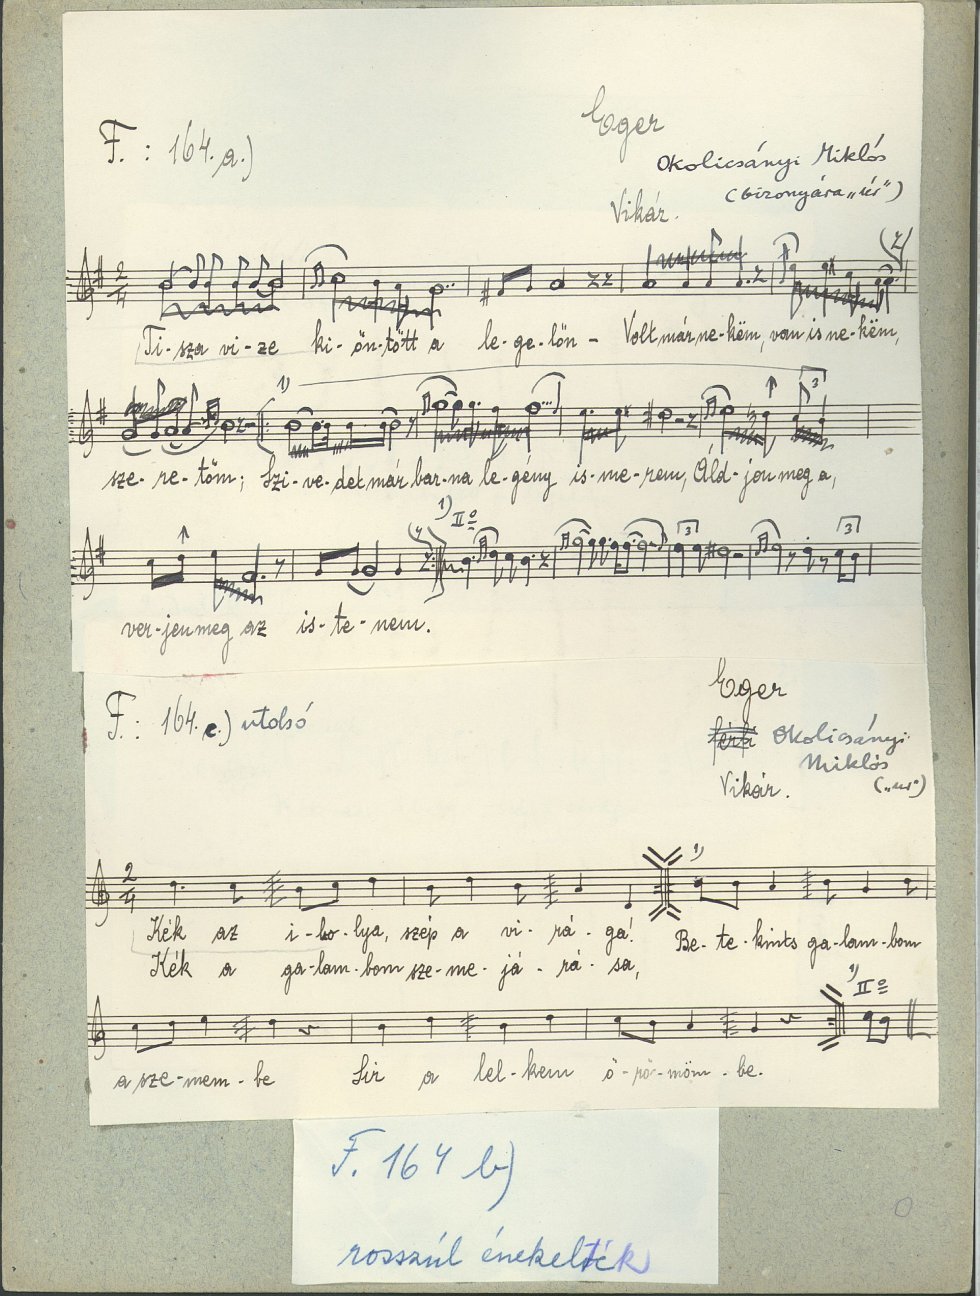 F. : 164. a.)
Eger
Okolicsányi Miklós
(bizonyára „úr")
Vikár.
2
4
Ti-sza vi-ze ki-ön-tött a le-ge-lön - Volt már ne-këm, van is ne-këm,
1)
3
sze-re-töm; Szi-ve-det már bar-na le-gény is-me-rem, Áld-jon meg a,
1) II º
3
3
ver-jen meg az is-te-nem.
Eger
F. : 164. c.) utolsó
férfi Okolicsányi
Miklós
Vikár. („úr")
2
4
1)
Kék az i-bo-lya, szép a vi-rá-ga! Be-te-kints ga-lam-bom
Kék a ga-lam-bom sze-me-já-rá-sa,
1) II º
a sze-mem-be Sir a lel-kem ö-rö-möm-be.
F. 164 b)
rosszúl énekelték